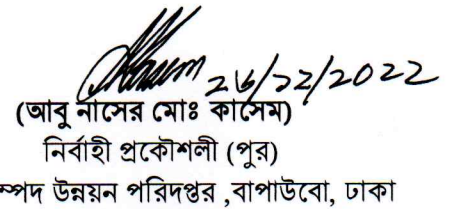 26/12/2022
(আবু নাসের মোঃ কাসেম)
নির্বাহী প্রকৌশলী (পুর)
ম্পদ উন্নয়ন পরিদপ্তর ,বাপাউবো, ঢাকা